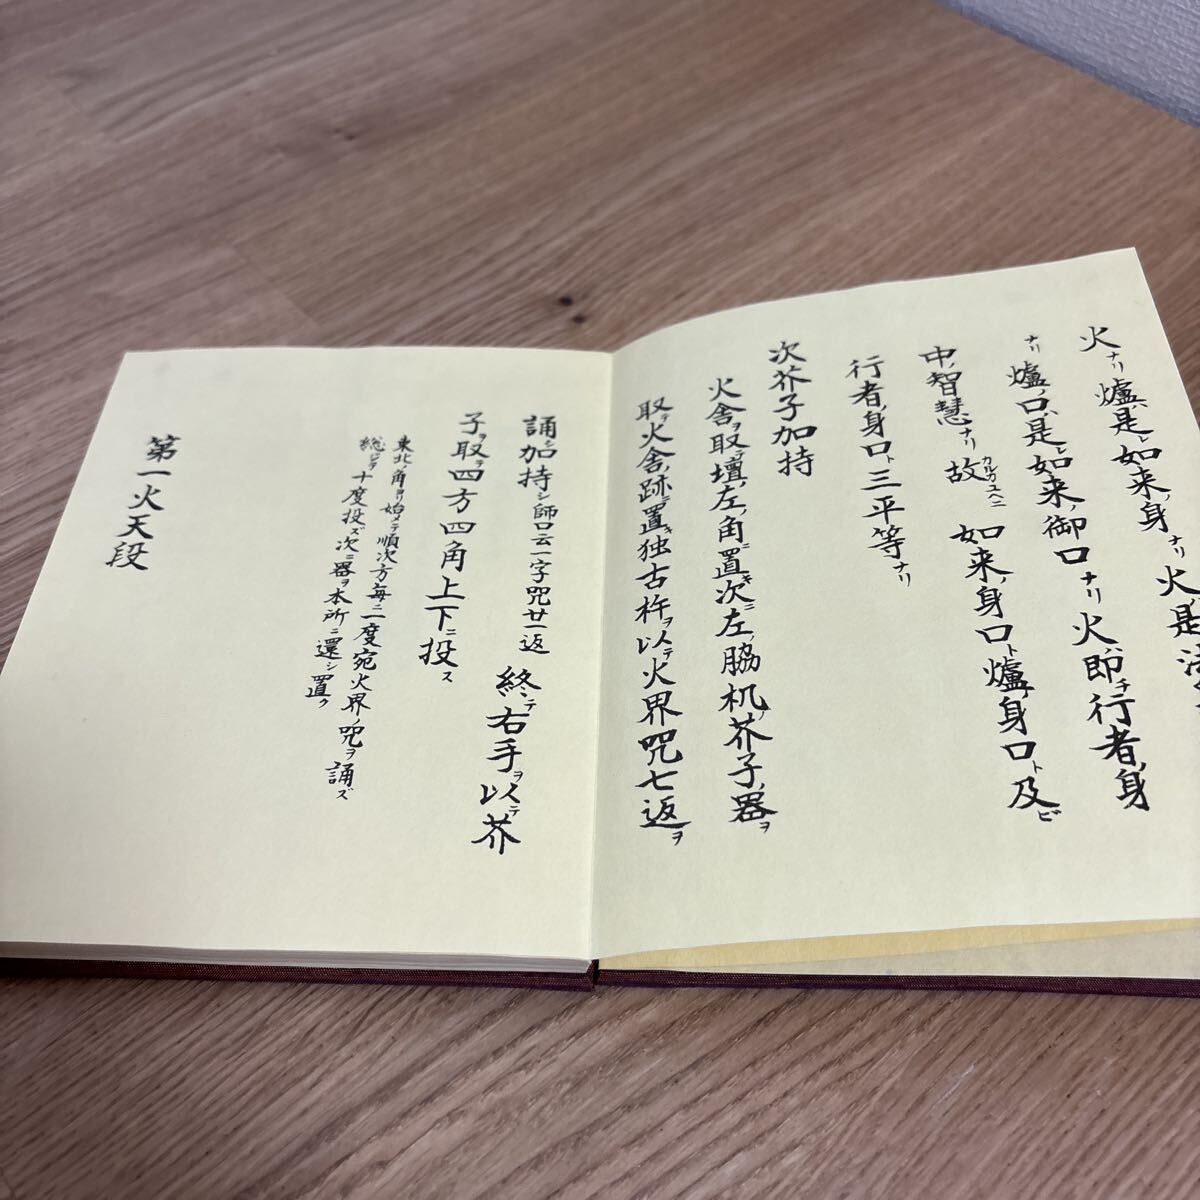 火ナリ爐ハ是レ如来ノ身ナリ火ハ是
ナリ爐ノ口ハ是レ如来ノ御口ナリ火ハ即チ行者ノ身
中ノ智慧ナリ故カルガユヘニ如来ノ身口ト爐ノ身口ト及ビ
行者ノ身口ト三平等ナリ
次芥子加持
火舎ヲ取テ壇ノ左ノ角ニ置キ次ニ左ノ脇机ノ芥子ノ器ヲ
取テ火舎ノ跡ニ置キ独古杵ヲ以テ火界呪七返ヲ
誦シ加持シ師口云一字呪廿一返終テ右手ヲ以テ芥
子ヲ取テ四方四角上下ニ投ス
東北ノ角ヨリ始メテ順次方毎ニ一度宛火界ノ呪ヲ誦ズ
総ジテ十度投ズ次ニ器ヲ本所ニ還シ置ク
第一火天段